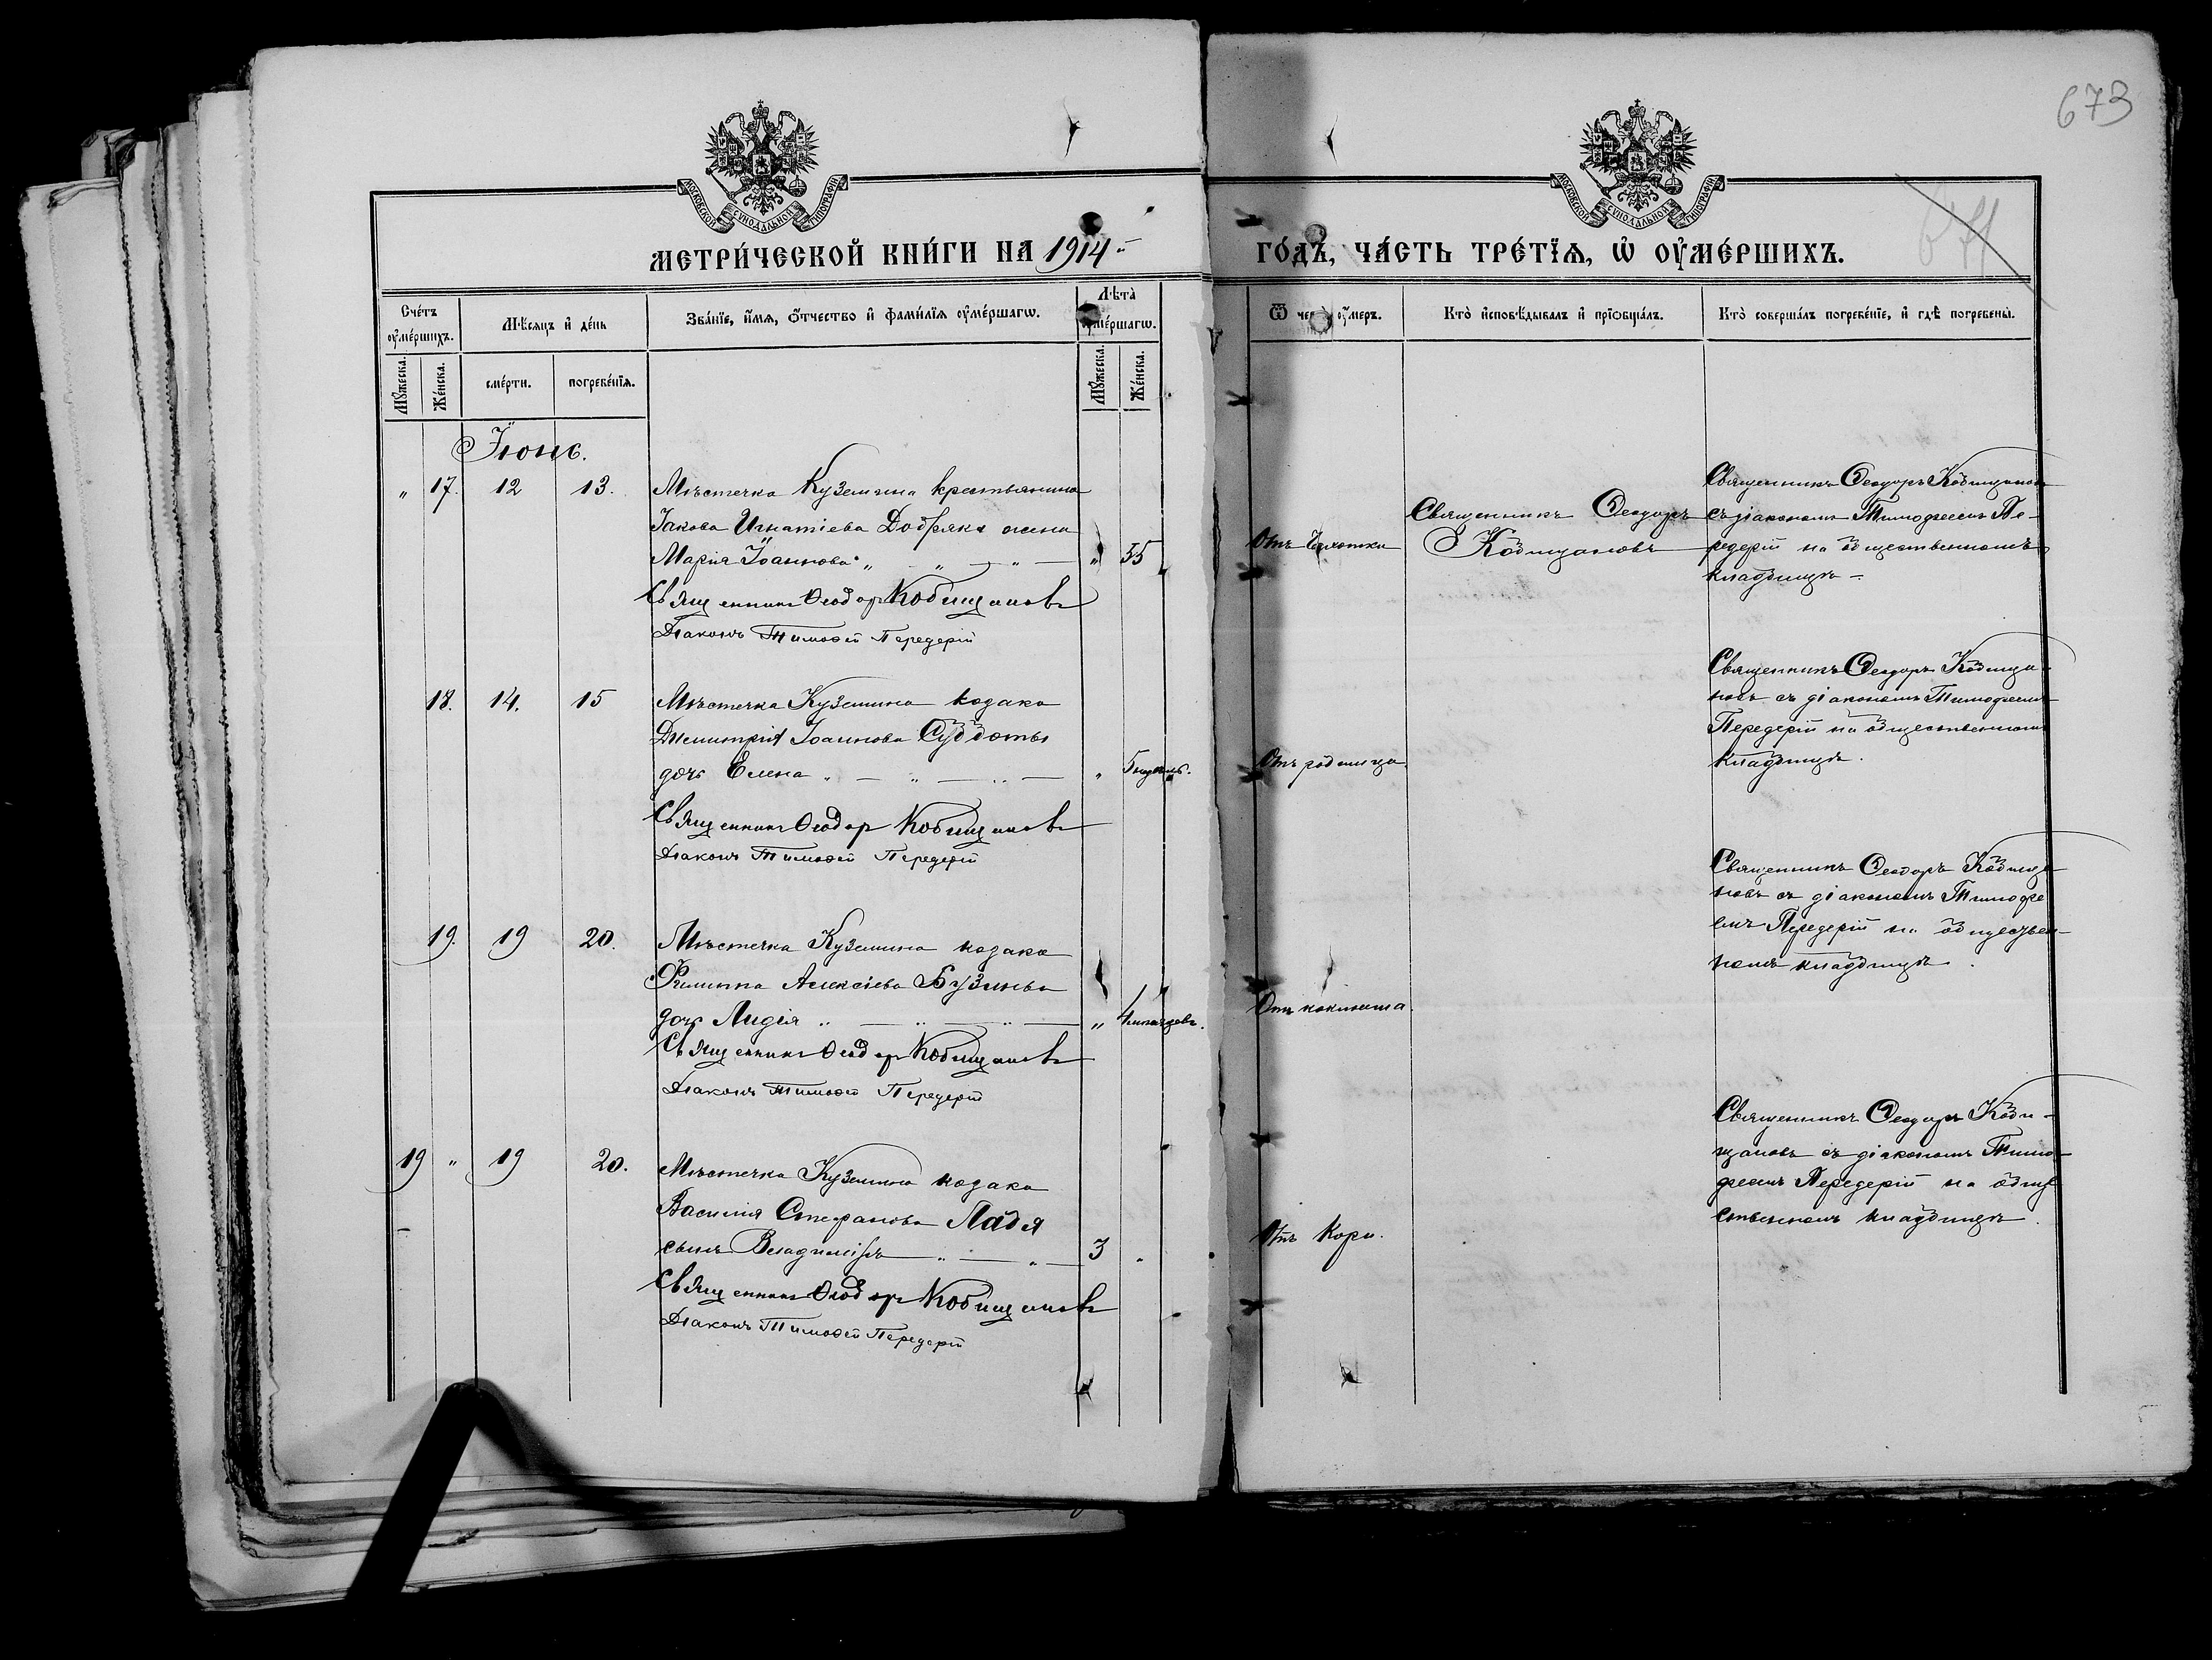 673
671
МОСКОВСКОЙ СѴНОДАЛЬНОЙ ТИПОГРАФІИ
МОСКОВСКОЙ СѴНОДАЛЬНОЙ ТИПОГРАФІИ
МЕТРИ́ЧЕСКОЙ КНИ́ГИ НА 1914
ГО́ДЪ, ЧА́СТЬ ТРЕ́ТЇѦ, Ѡ҆ ОУ҆МЕ́РШИХЪ.
Сче́тъ оу҆ме́ршихъ.
Мѣ́сяцъ и҆ де́нь
Зва́нїе, и҆́мѧ, ѻ҆́тчество и҆ фами́лїѧ оу҆ме́ршагѡ.
Лѣта̀ оу҆ме́ршагѡ.
Ѿ чегѡ̀ оу҆́меръ.
Кто̀ и҆сповѣ́дывалъ и҆ прїѡбща́лъ.
Кто̀ соверша́лъ погребе́нїе, и҆ гдѣ̀ погребены̀.
Мꙋ́жеска. Же́нска. сме́рти. погребе́нїѧ. Мꙋ́жеска. Же́нска.
Іюнь.
" 17. 12 13. Мѣстечка Куземина крестьянина
Іакова Игнатіева Добряка жена
Марія Іоаннова " — " — " 55
Священникъ Ѳеодоръ Кобищановъ
Діаконъ Тимоѳей Передерій
Отъ чахотки
Священникъ Ѳеодоръ
Кобищановъ
Священникъ Ѳеодоръ Кобищановъ
съ діакономъ Тимофеемъ Пе-
редерій на общественномъ
кладбищѣ –
18. 14. 15 Мѣстечка Куземина козака
Димитрія Іоаннова Субботы
дочь Елена " — " — " — " 5 недѣль.
Священникъ Ѳеодоръ Кобищановъ
Діаконъ Тимоѳей Передерій
Отъ родимца
Священникъ Ѳеодоръ Кобища-
новъ съ діакономъ Тимофеемъ
Передерій на общественномъ
кладбищѣ.
19. 19 20. Мѣстечка Куземина козака
Филиппа Алексіева
дочь Лидія " — " — " — "
Священникъ Ѳеодоръ Кобищановъ
Діаконъ Тимоѳей Передерій
Отъ коклюша.
Священникъ Ѳеодоръ Кобища-
новъ съ діакономъ Тимофе
емъ Передерій на обществен-
номъ кладбищѣ.
19 " 19 20. Мѣстечка Куземина козака
Василія Стефанова Ладя
сынъ Владиміръ " — " — 3 "
Священникъ Ѳеодоръ Кобищановъ
Діаконъ Тимоѳей Передерій
Отъ Кори.
Священникъ Ѳеодоръ Коби-
щановъ съ діакономъ Тимо-
феемъ Передерій на обще
ственномъ кладбищѣ.